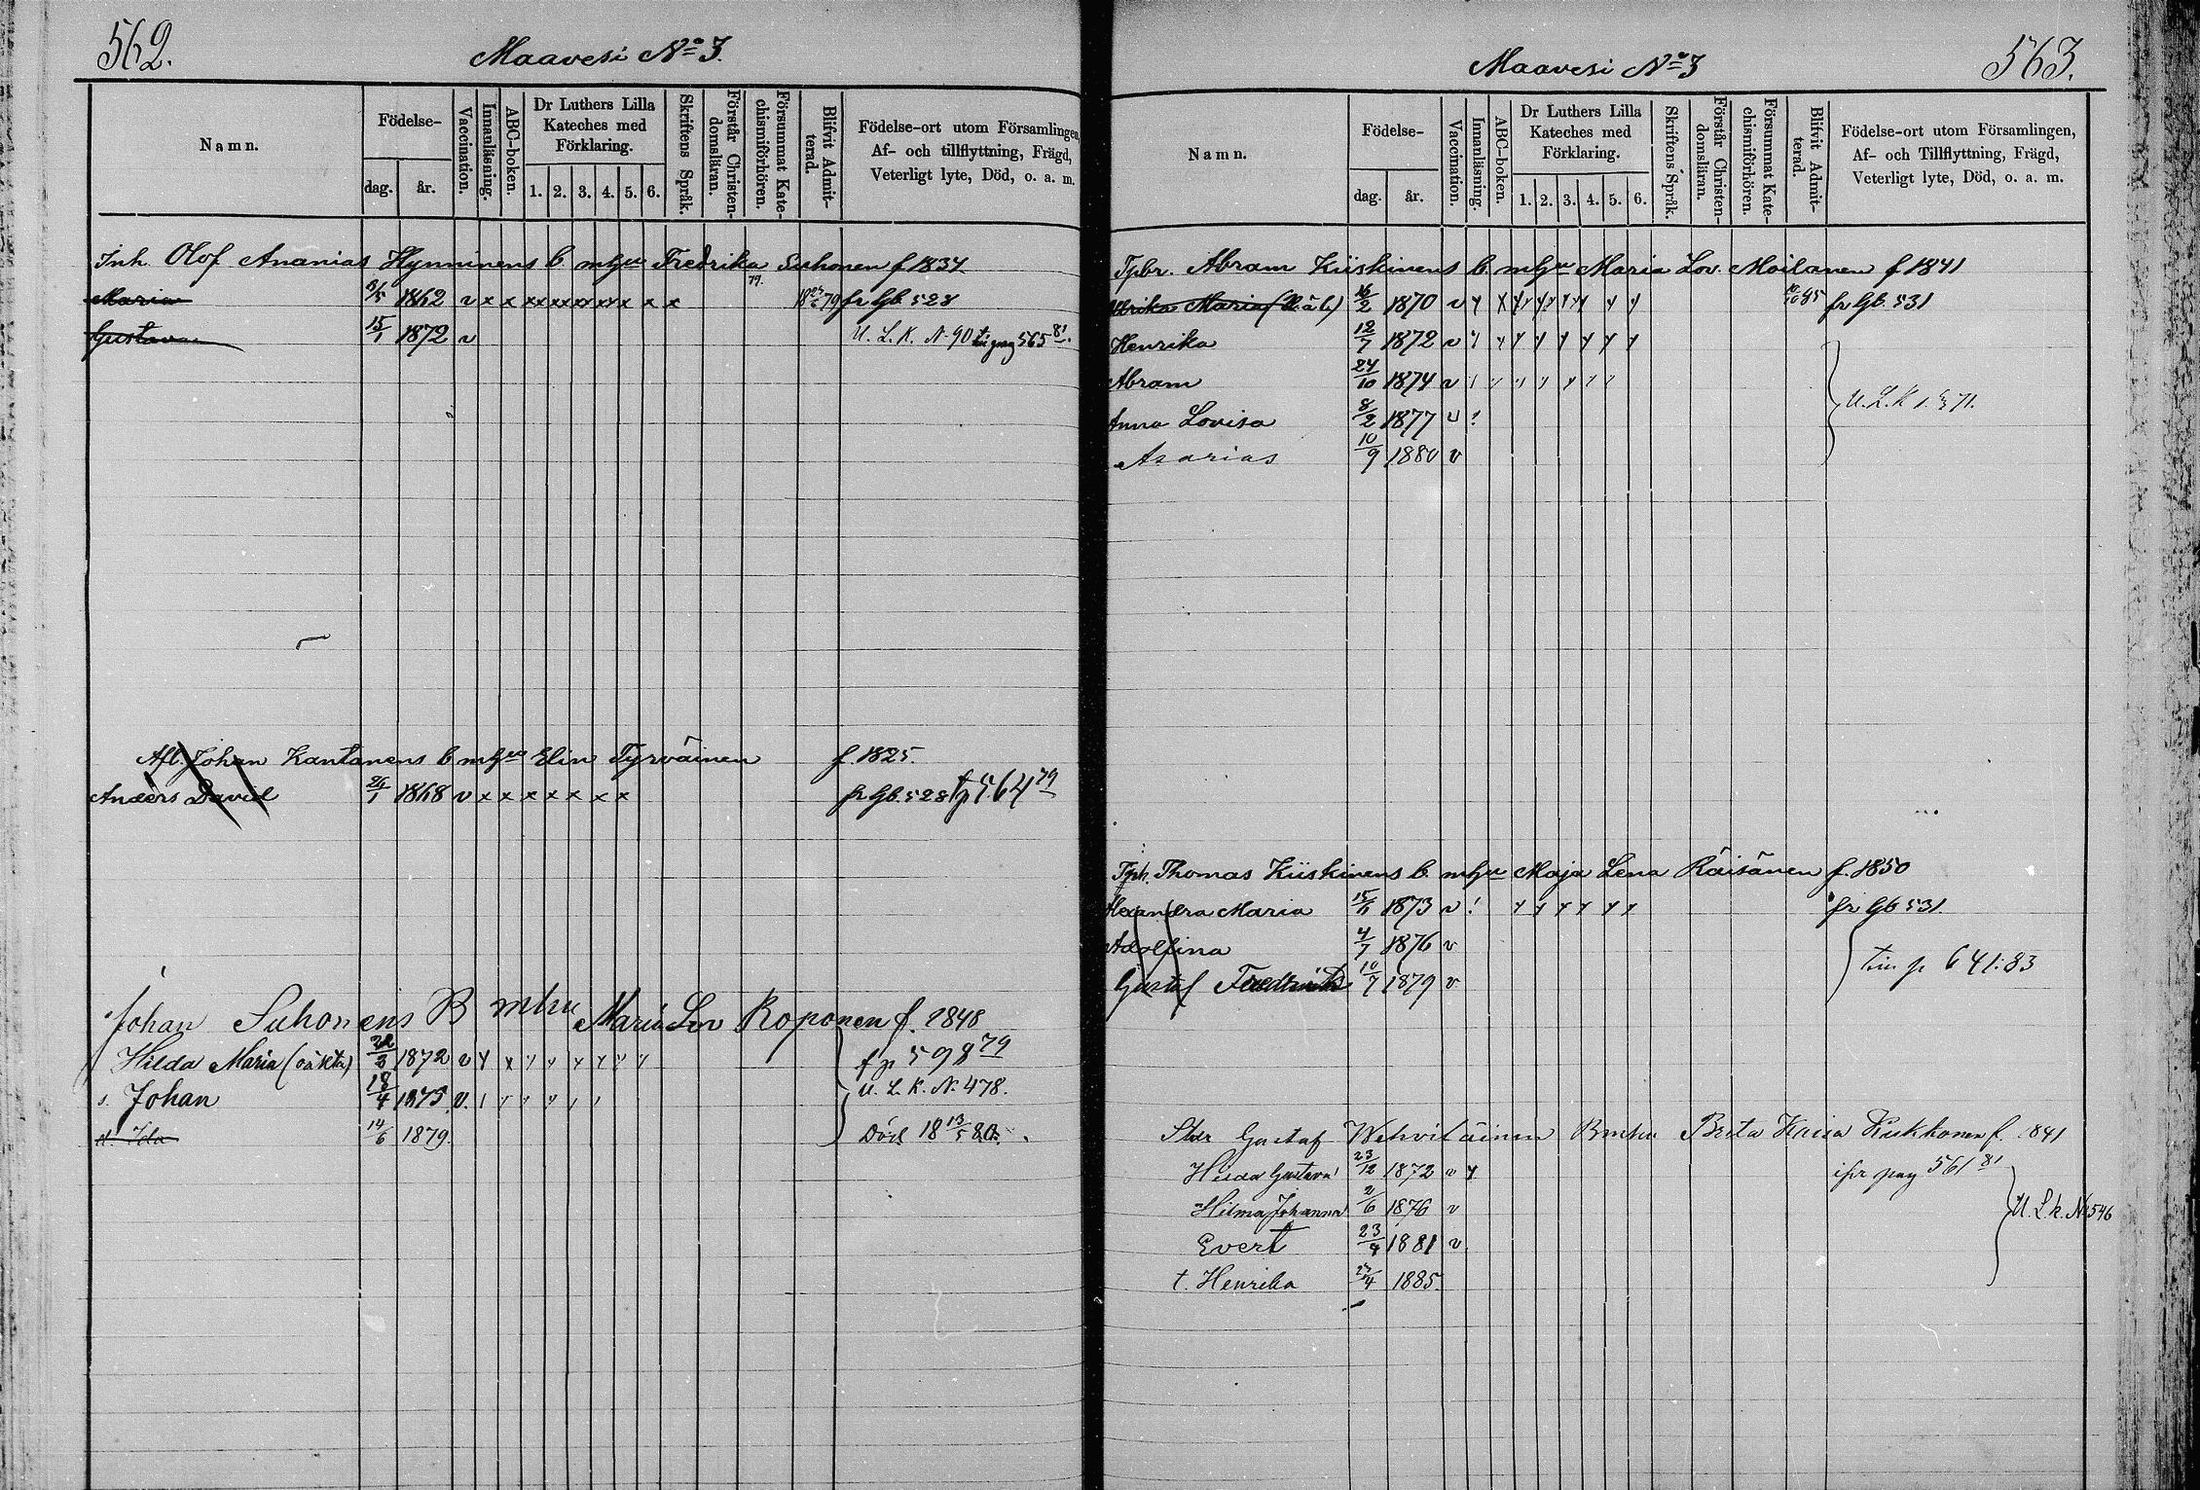 562.
Maavesi No 3.
Namn.
Födelse-
dag.
år.
Vaccination.
Innanläsning.
ABC-boken.
Dr Luthers Lilla
Kateches med
Förklaring.
1. 2. 3. 4. 5. 6.
Skriftens Språk.
Förstår Christen-
domsläran.
Försummat Kate-
chismiförhören.
Blifvit Admit-
terad.
Födelse-ort utom Församlingen,
Af- och tillflyttning, Frägd,
Veterligt lyte, Död, o. a. m.
Inh. Olof Ananias Hynninens b. mhu Fredrika Suhonen f. 1834
Maria 1862 v x x xx xx xx xx x x x 79 fr Gb. 528
Gustava 15/1 1872 v U. L. K. N. 90 pag 565 81.
Afl. Johan Kantanens b mhu Elin Tyrväinen f. 1825.
Anders David 26/1 1868 v x x x x x x x fr Gb. 528 tp 564 79
Johan Suhonens B mhu Maria Lov Roponen f. 1848
Hilda Maria 1872 v f p 598 79
s. Johan 18/4 1875 v. U. L. K. N. 478.
d. Ida 14/6 1879. Död 18 13/5 80.
563.
Maavesi No 3
Namn.
Födelse-
dag.
år.
Vaccination.
Innanläsning.
ABC-boken.
Dr Luthers Lilla
Kateches med
Förklaring.
1. 2. 3. 4. 5. 6.
Skriftens Språk.
Förstår Christen-
domsläran.
Försummat Kate-
chismiförhören.
Blifvit Admit-
terad.
Födelse-ort utom Församlingen,
Af- och Tillflyttning, Frägd,
Veterligt lyte, Död, o. a. m.
Tpbr. Abram Kiiskinens b. mhu Maria Lov. Moilanen f 1841
Ulrika Maria 16/2 1870 v 85 fr Gb. 531
Henrika 12/7 1872 v
Abram 24/10 1874 v U. L. K
Anna Lovisa 8/2 1877 v !
Asarias 10/9 1880 v
Tph. Thomas Kiiskinens b. mhu Maja Lena Räisänen f. 1850
Alexandra Maria 1873 v ! fr Gb 531.
Adolfina 4/7 1876 v
Gustaf Fredrik 10/7 1879 v p 641.83
Gustaf Wehviläinen Bmhu Brita Kaisa Kukkonen f. 1841
Hilda Gustava 23/12 1872 v pag 561 81
Hilma Johanna 2/6 1876 v U. L. k. No 546
Evert 23/4 1881 v
t. Henrika 1885.